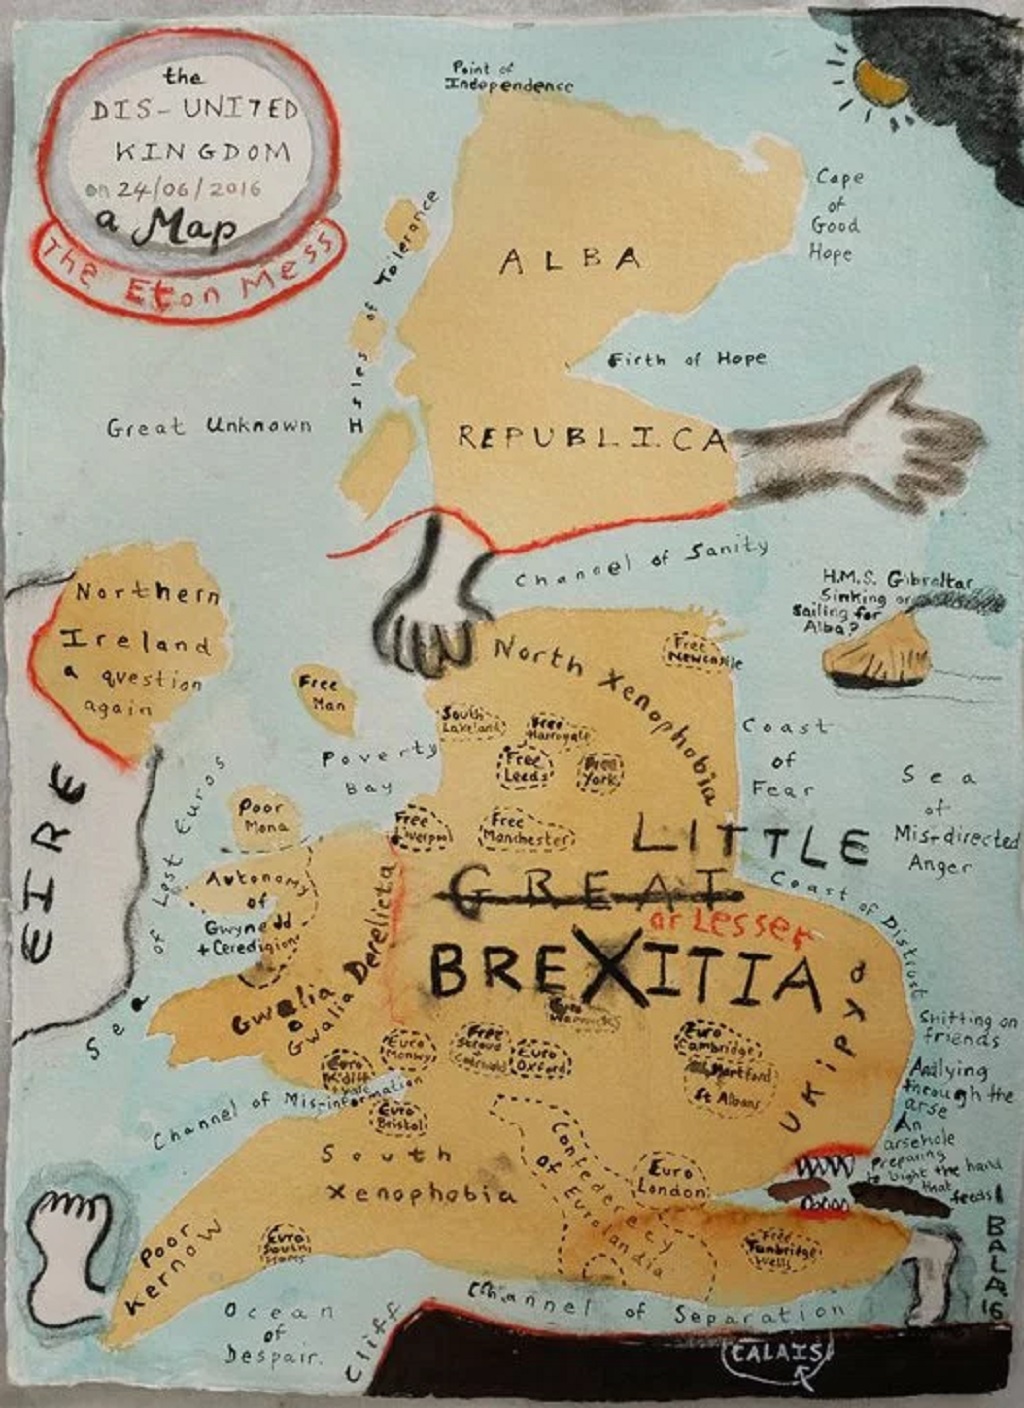 the
DIS-UNITED
KINGDOM
on 24/06/2016
a Map
The Eton Mess
Point of
Independence
Cape
of
Good
Hope
ALBA
Isles of Tolerance
Firth of Hope
Great Unknown
REPUBLICA
Channel of Sanity
H.M.S. Gibraltar
Sinking or
Sailing for
Alba?
Northern
Ireland
a question
again
EIRE
Free
Man
North Xenophobia
Free
Newcastle
South
Lakeland
Free
Harrogate
Free
Leeds
Free
York
Coast
of
Fear
Sea
of
Mis-directed
Anger
Poverty
Bay
Poor
Mona
Free
Liverpool
Free
Manchester
LITTLE
GREAT
or Lesser
BREXITIA
Coast of Distrust
Sea of Lost Euros
Autonomy
of
Gwynedd
+ Ceredigion
Gwalia
or
Gwalia Derelicta
Euro
Warwicks
Ukipya
Euro
Monwy
Free
Stroud
Cotswold
Euro
Oxford
Euro
Cambridge
Hertford
St Albans
Euro
K'diff
Channel of Mis-information
Euro
Bristol
Shitting on
friends
An
arsehole
Preparing
to bight the hand
that
feeds!
South
Xenophobia
Confederecy
of Eurolandia
Euro
London
Free
Tunbridge
Wells
Poor
Kernow
Euro
South
Hams
Ocean
of
Despair.
Cliff
Channel of Separation
CALAIS
BALA '16